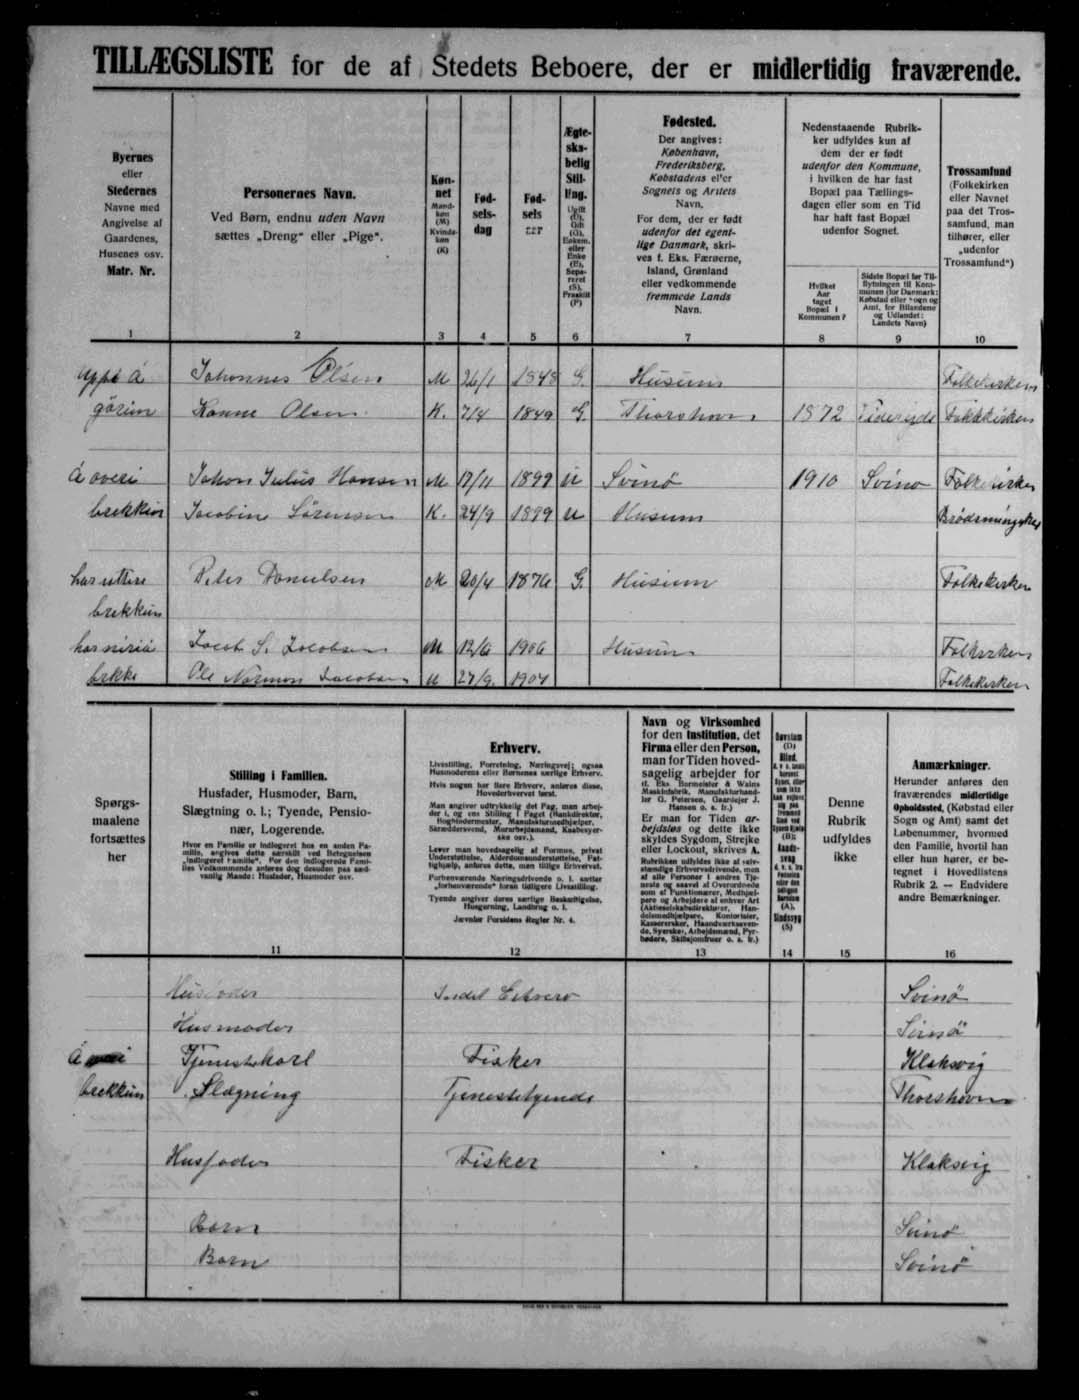 TILLÆGSLISTE for de af Stedets Beboere, der er midlertidig fraværende.
Byernes
eller
Stedernes
Navne med
Angivelse af
Gaardenes,
Husenes osv.
Matr. Nr.
Personernes Navn.
Ved Børn, endnu uden Navn
sættes „Dreng“ eller „Pige“.
Køn-
net
Mand-
køn
(M)
Kvinde-
køn
(K)
Fød-
sels-
dag
Fød-
sels
aar
Ægte-
ska-
belig
Stil-
ling.
Ugift
(U),
Gift
(G),
Enkem.
eller
Enke
(E),
Sepa-
reret
(S),
Fraskilt
(F)
Fødested.
Der angives:
København,
Frederiksberg,
Købstadens eller
Sognets og Amtets
Navn.
For dem, der er født
udenfor det egent-
lige Danmark, skri-
ves f. Eks. Færøerne,
Island, Grønland
eller vedkommende
fremmede Lands
Navn.
Nedenstaaende Rubrik-
ker udfyldes kun af
dem der er født
udenfor den Kommune,
i hvilken de har fast
Bopæl paa Tællings-
dagen eller som en Tid
har haft fast Bopæl
udenfor Sognet.
Hvilket
Aar
taget
Bopæl i
Kommunen?
Sidste Bopæl før Til-
flytningen til Kom-
munen (for Danmark:
Købstad eller Sogn og
Amt, for Bilandene
og Udlandet:
Landets Navn)
Trossamfund
(Folkekirken
eller Navnet
paa det Tros-
samfund, man
tilhører, eller
„udenfor
Trossamfund“)
1 2 3 4 5 6 7 8 9 10
á Johannes Olsen M 26/1 1848 G. Husum Folkekirken
gørim Hanne Olsen K. 7/4 1849 G. Thorshavn 1872 Folkekirken
á overi Johan Julius Hansen M 17/11 1899 U Svinø 1910 Svinø Folkekirken
brekkun Jacobine Sørensen K. 24/9 1899 U Husum
Peter Danielsen M 20/4 1876 G. Husum Folkekirken
brekkun
Jacob S. Jacobsen M 12/6 1906 Husum Folkekirken
brekke Ole Jacobsen M 27/9. 1907 Folkekirken
Spørgs-
maalene
fortsættes
her
Stilling i Familien.
Husfader, Husmoder, Barn,
Slægtning o. l.; Tyende, Pensio-
nær, Logerende.
Hvor en Familie er indlogeret hos en anden Fa-
milie, angives dette særskilt ved Betegnelsen
„indlogeret Familie“. For den indlogerede Fami-
lies Vedkommende anføres dog desuden paa sæd-
vanlig Maade: Husfader, Husmoder osv.
Erhverv.
Livsstilling, Forretning, Næringsvej; ogsaa
Husmoderens eller Børnenes særlige Erhverv.
Hvis nogen har flere Erhverv, anføres disse,
Hovederhvervet først.
Man angiver udtrykkelig det Fag, man arbej-
der i, og ens Stilling i Faget (Bankdirektør,
Bogbindermester, Manufakturmedhjælper,
Skræddersvend, Murarbejdsmand, Kaabesyer-
ske osv.).
Lever man hovedsagelig af Formue, privat
Understøttelse, Alderdomsunderstøttelse, Fat-
tighjælp, anføres dette, men tillige Erhvervet.
Forhenværende Næringsdrivende o. l. sætter
„forhenværende“ foran tidligere Livsstilling.
Tyende angiver deres særlige Beskæftigelse,
Husgerning, Landbrug o. l.
Jævnfør Forsidens Regler Nr. 4.
Navn og Virksomhed
for den Institution, det
Firma eller den Person,
man for Tiden hoved-
sagelig arbejder for
(f. Eks. Burmeister & Wains
Maskinfabrik, Manufakturhand-
ler G. Petersen, Gaardejer J.
Hansen o. s. fr.)
Er man for Tiden ar-
bejdsløs og dette ikke
skyldes Sygdom, Strejke
eller Lockout, skrives A.
Rubrikken udfyldes ikke af selv-
stændige Erhvervsdrivende, men
af alle Personer i andres Tje-
neste og saavel af Overordnede
som af Funktionærer, Medhjæl-
pere og Arbejdere af enhver Art
(Aktieselskabsdirektører, Han-
delsmedhjælpere, Kontorister,
Kasserersker, Haandværkssven-
de, Syersker, Arbejdsmænd, Fyr-
bødere, Skibsjomfruer o. s. fr.)
Døvstum
(D)
Blind.
(B);
Aands-
svag
(A),
Sindssyg
(S)
Denne
Rubrik
udfyldes
ikke
Anmærkninger.
Herunder anføres den
fraværendes midlertidige
Opholdssted, (Købstad eller
Sogn og Amt) samt det
Løbenummer, hvormed
den Familie, hvortil han
eller hun hører, er be-
tegnet i Hovedlistens
Rubrik 2. — Endvidere
andre Bemærkninger.
11 12 13 14 15 16
Husfader Erhverv Svinø
Husmoder Svinø
Á Tjenestekarl Fisker Klaksvig
brekkun Slægning Tjenestetyende Thorshavn
Husfader Fisker Klaksvig
Barn Svinø
Barn Svinø